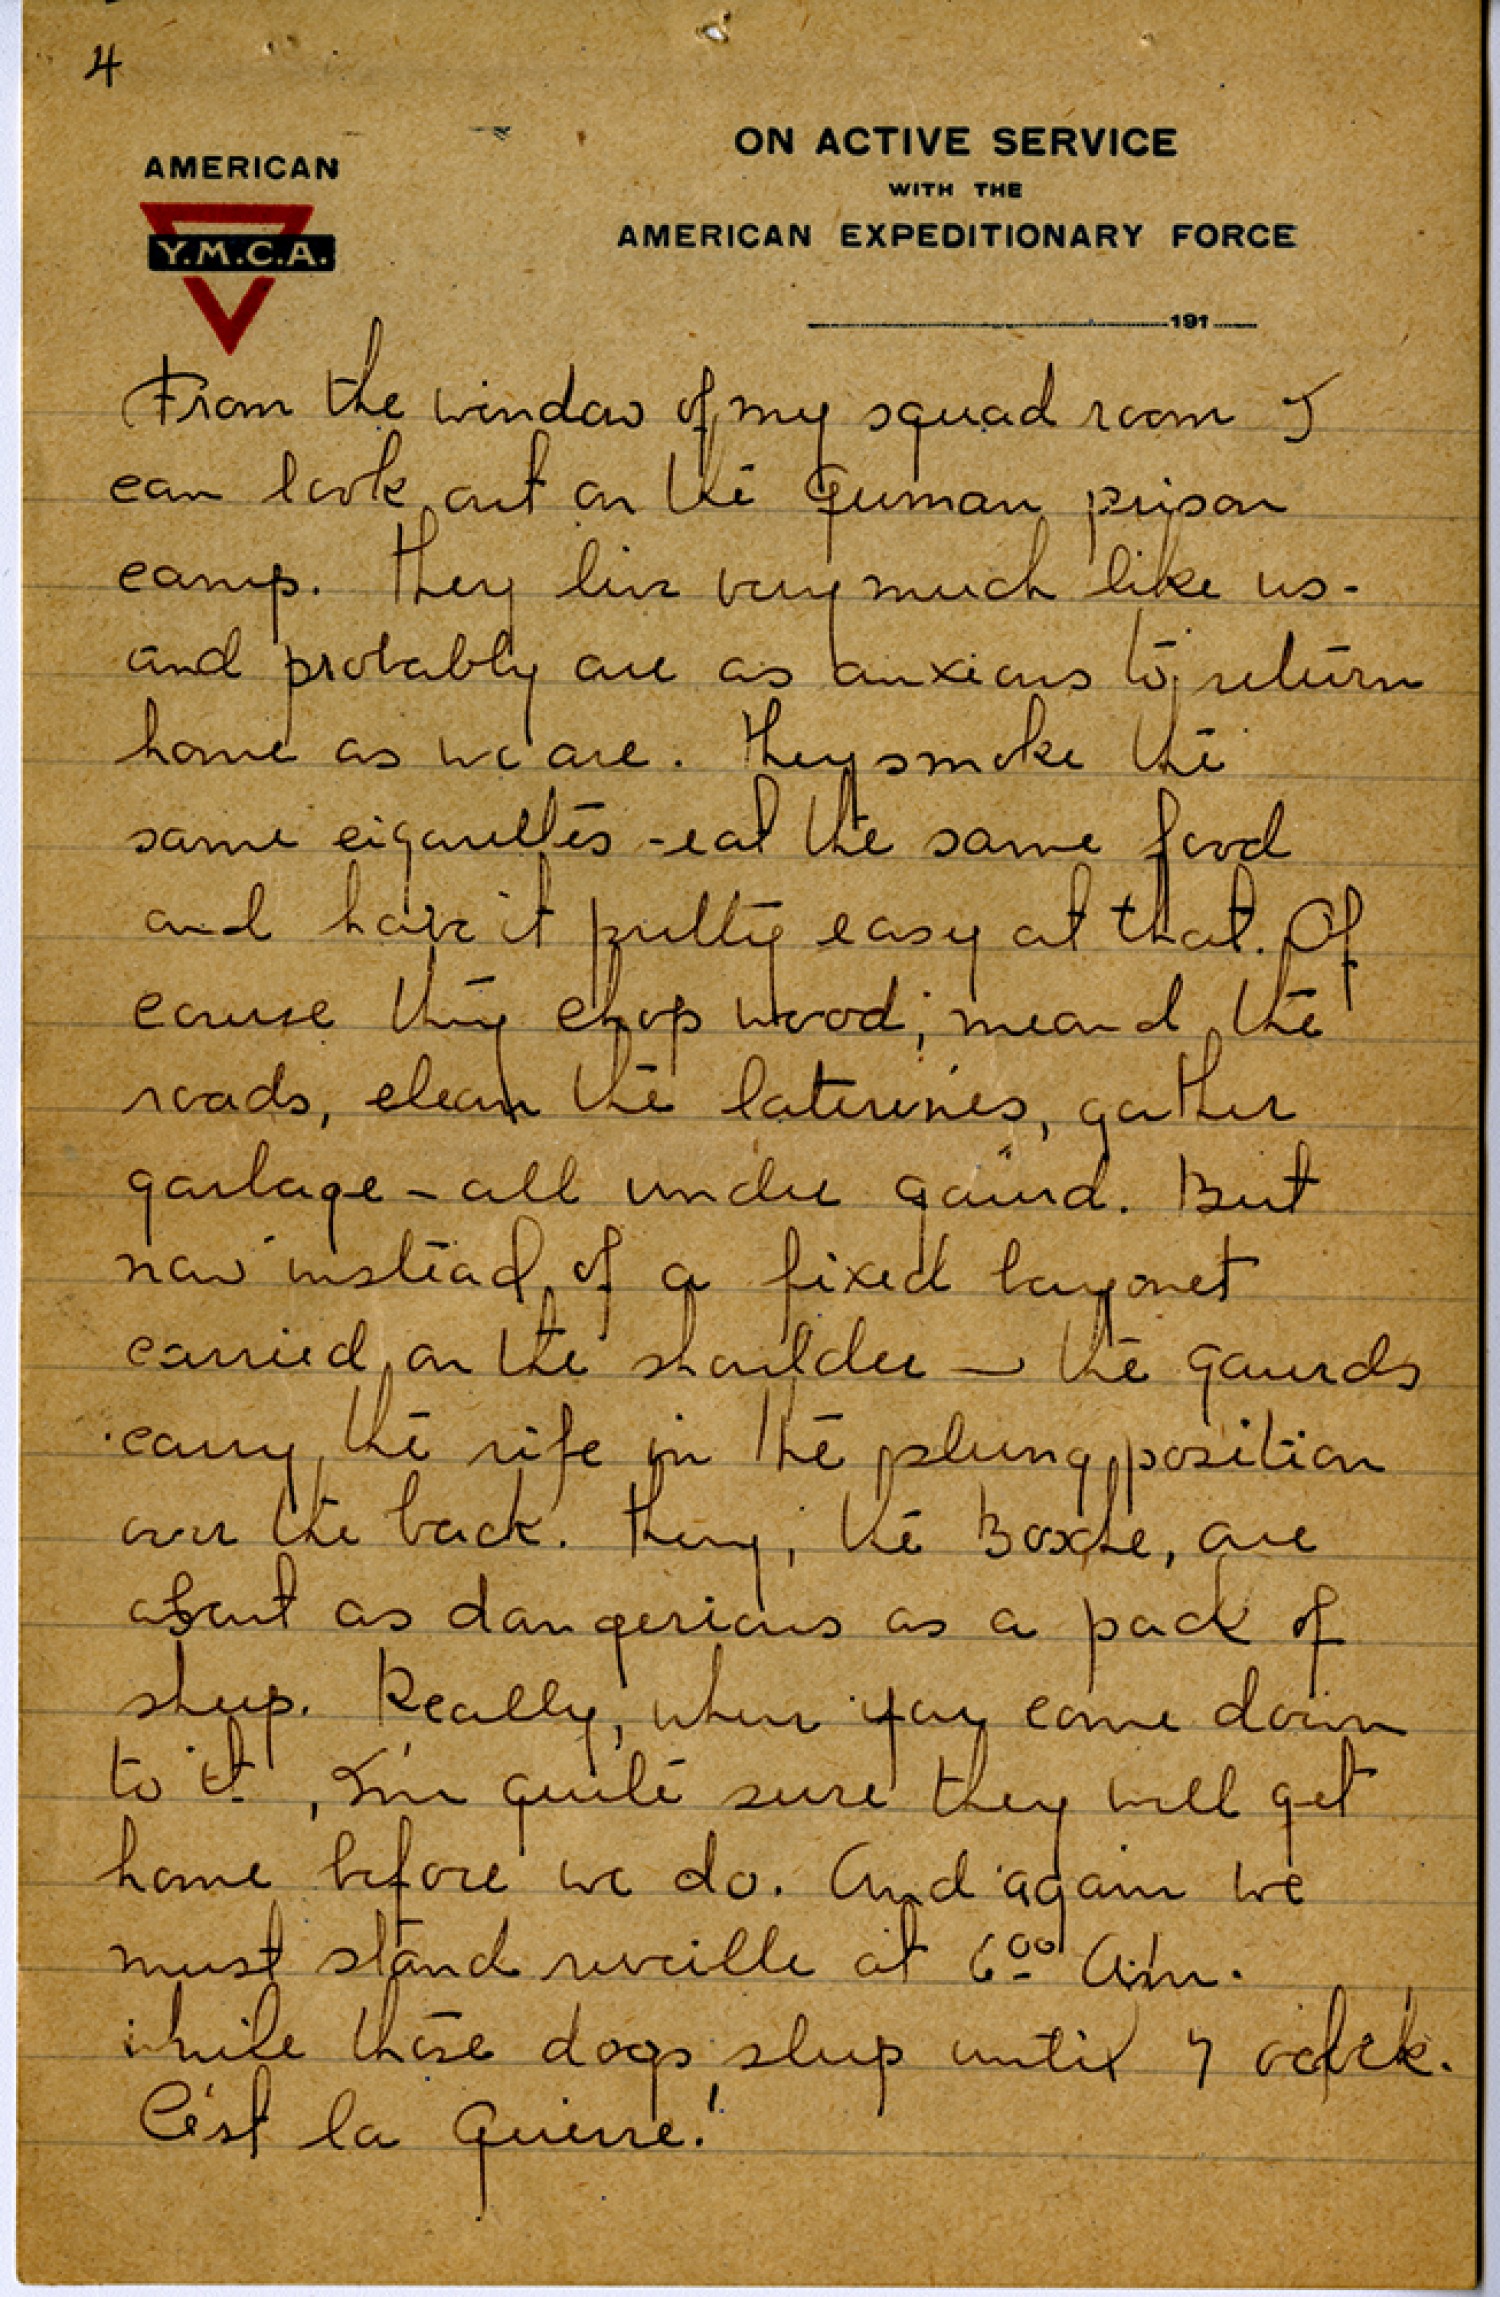 4
AMERICAN
Y.M.C.A.
ON ACTIVE SERVICE
WITH THE
AMERICAN EXPEDITIONARY FORCE
191
From the window of my squad room I
can look out on the German prison
camp. They live very much like us -
and probably are as anxious to return
home as we are. They smoke the
same cigarettes - eat the same food
and have it pretty easy at that. Of
course they chop wood, meand the
roads, clean the laterines, gather
garbage - all under gaurd. But
now instead of a fixed bayonet
carried on the shoulder - the gaurds
carry the rife in the slung position
over the back. They, the Boxche, are
about as dangerious as a pack of
sheep. Really, when you come down
to it, I'm quite sure they will get
home before we do. And again we
must stand reveille at 6 00 A.m.
while those dogs sleep until 7 oclock.
C'est la Guerre!